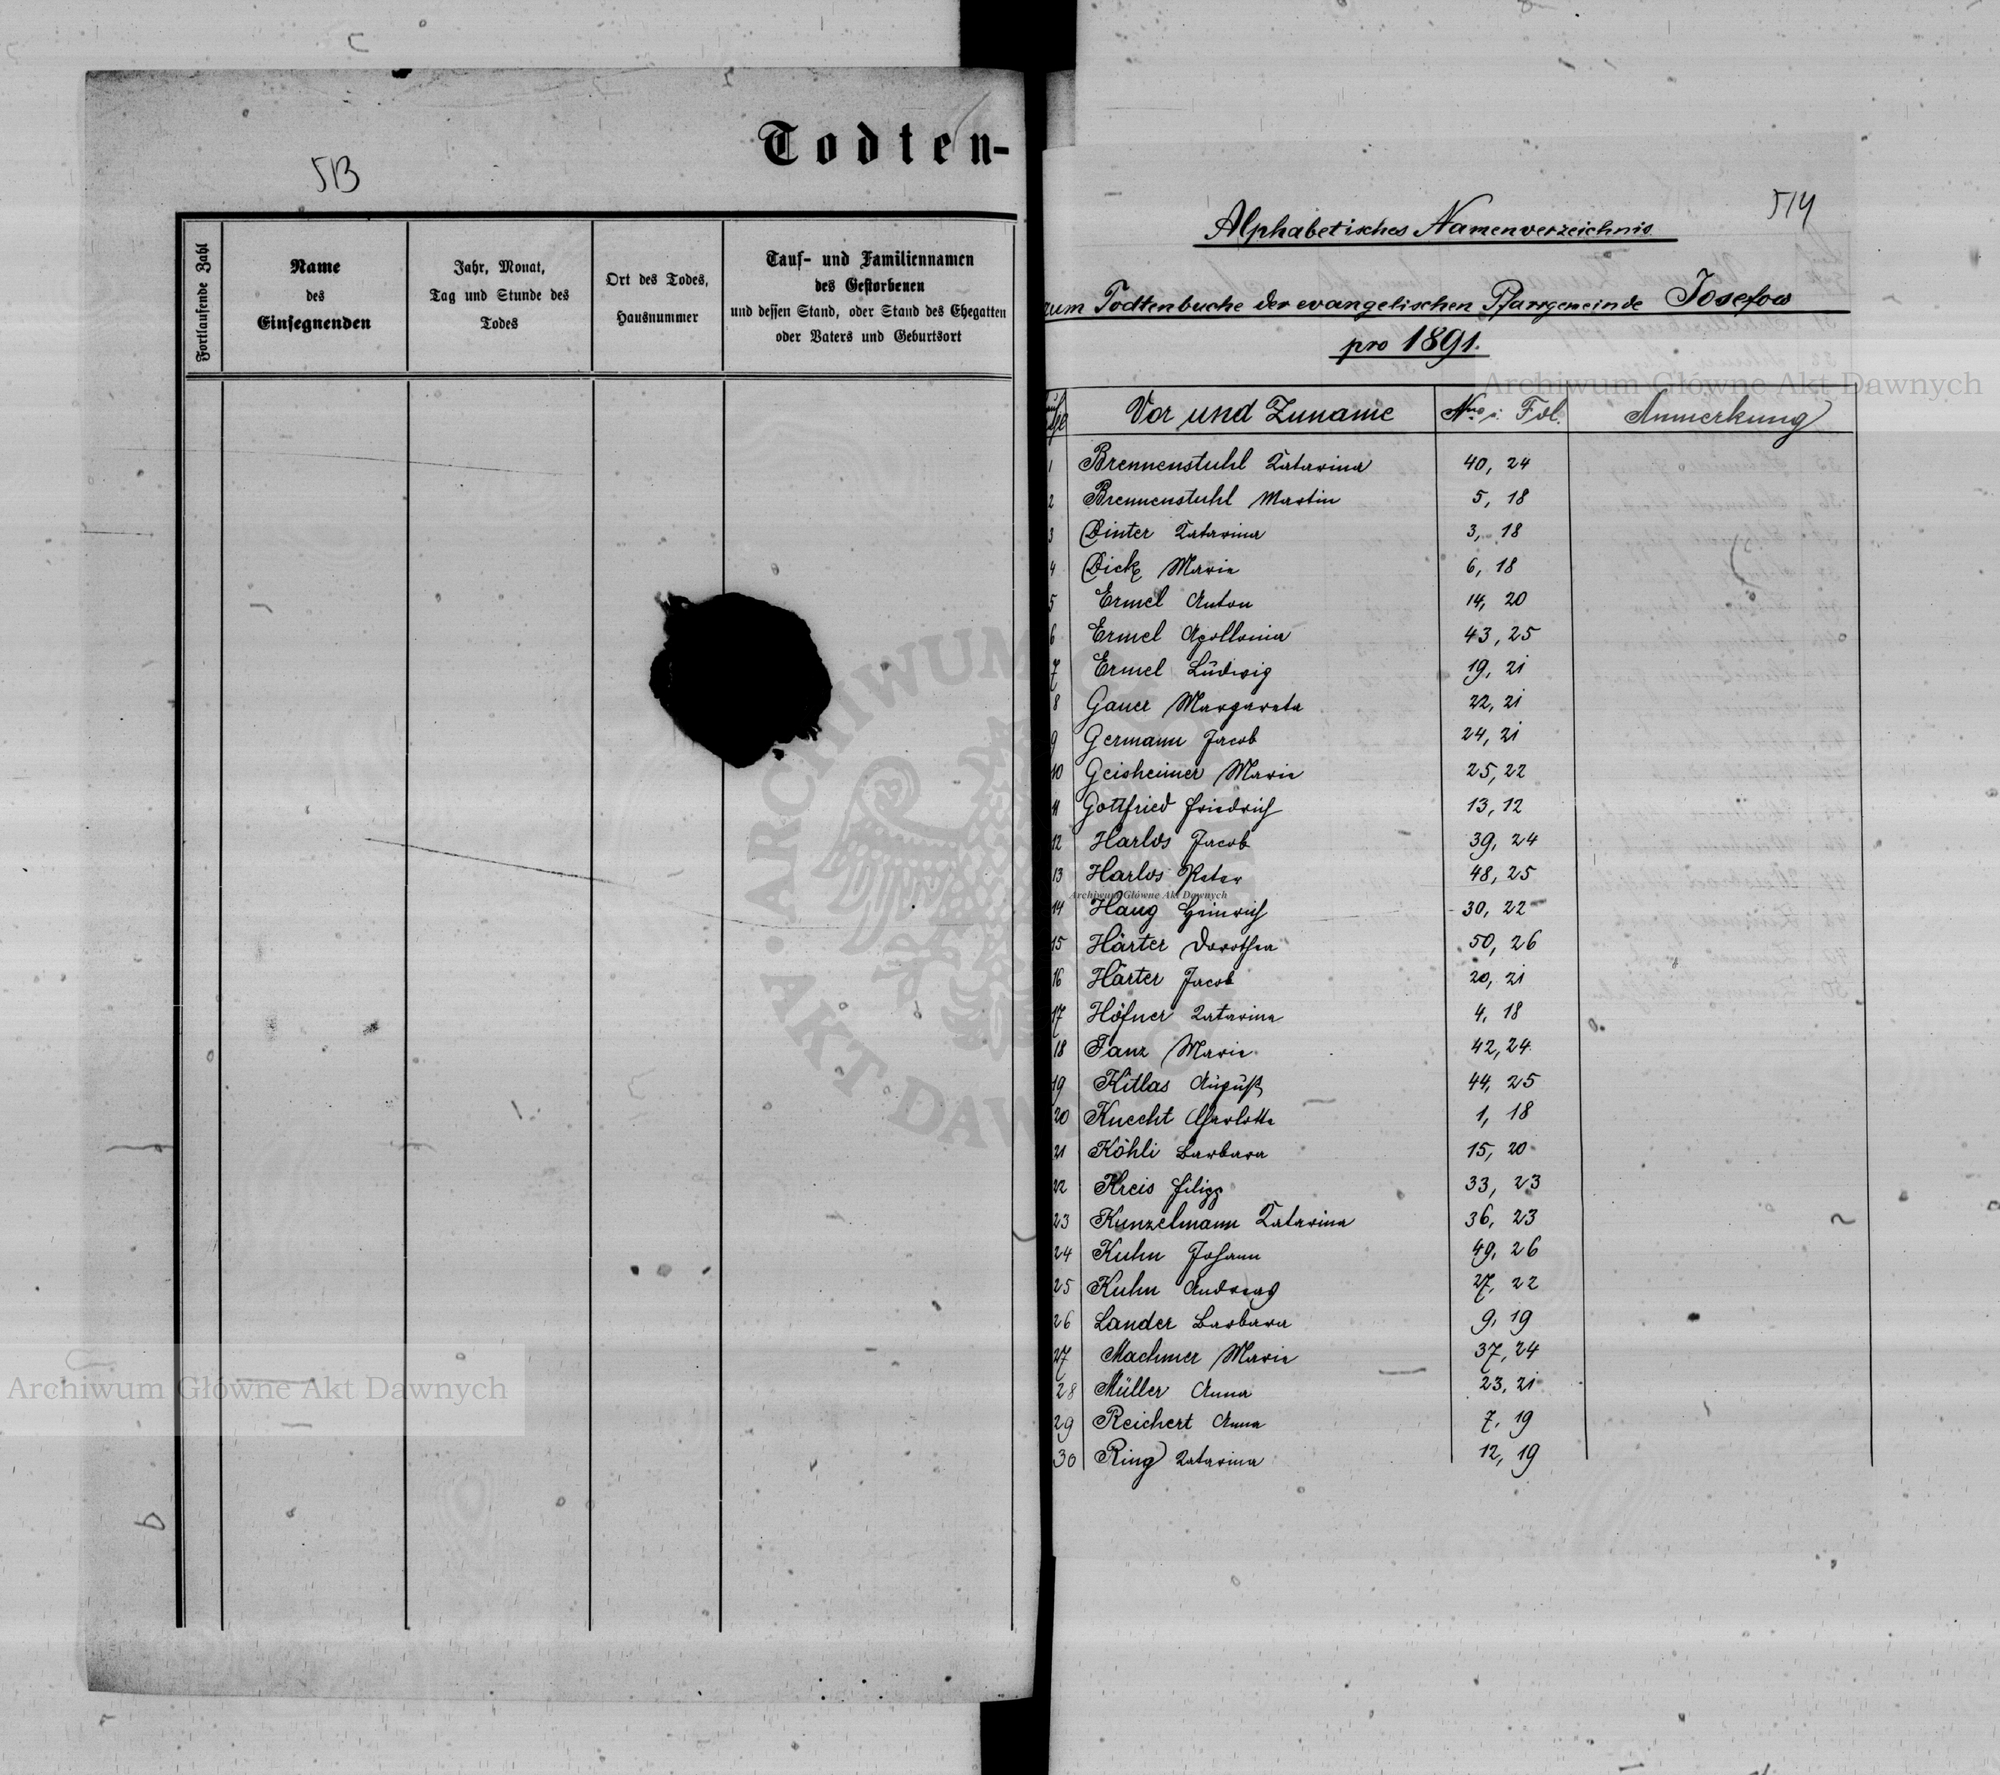 Todten-
513
Fortlaufende Zahl
Name
des
Einsegnenden
Jahr, Monat,
Tag und Stunde des
Todes
Ort des Todes,
Hausnummer
Tauf- und Familiennamen
des Gestorbenen
und dessen Stand, oder Stand des Ehegatten
oder Vaters und Geburtsort
514
Alphabetisches Namenverzeichnis
zum Todtenbuche der evangelischen Pfarrgemeinde Josefow
pro 1891.
Vor und Zuname Nro u: Fol. Anmerkung
1 Brennenstuhl Katarina 40, 24
2 Brennenstuhl Martin 5, 18
3 Dinter Katarina 3, 18
4 Dick Marie 6, 18
5 Ermel Anton 14, 20
6 Ermel Apollonia 43, 25
7 Ermel Ludwig 19, 21
8 Gauer Margareta 22, 21
9 Germann Jacob 24, 21
10 Geisheimer Marie 25, 22
11 Gottfried Friedrich 13, 12
12 Harlos Jacob 39, 24
13 Harlos Peter 48, 25
14 Haug Heinrich 30, 22
15 Härter Dorothea 50, 26
16 Härter Jacob 20, 21
17 Höfner Katarina 4, 18
18 Janz Marie 42, 24
19 Kitlas August 44, 25
20 Knecht Charlotte 1, 18
21 Köhli Barbara 15, 20
22 Kreis Filipp 33, 23
23 Kunzelmann Katarina 36, 23
24 Kuhn Johann 49, 26
25 Kuhn Andreas 27, 22
26 Lander Barbara 9, 19
27 Machmer Marie 37, 24
28 Müller Anna 23, 21
29 Reichert Anna 7, 19
30 Ring Katarina 12, 19
Archiwum Główne Akt Dawnych
Archiwum Główne Akt Dawnych
Archiwum Główne Akt Dawnych
ARCHIWUM
AKT DAW